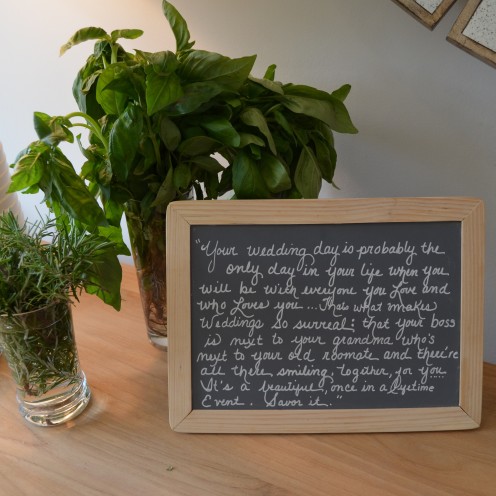 "Your wedding day is probably the
only day in your life when you
will be with everyone you Love and
who Loves you... Thats what makes
Weddings so surreal: that your boss
is next to your grandma who's
next to your old roomate and they're
all there, smiling, together, for you....
It's a beautiful, once in a lifetime
Event. Savor it."